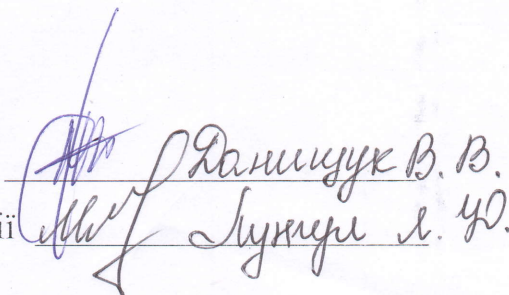 Данищук В. В.
ії Лунгул Л. Ю.